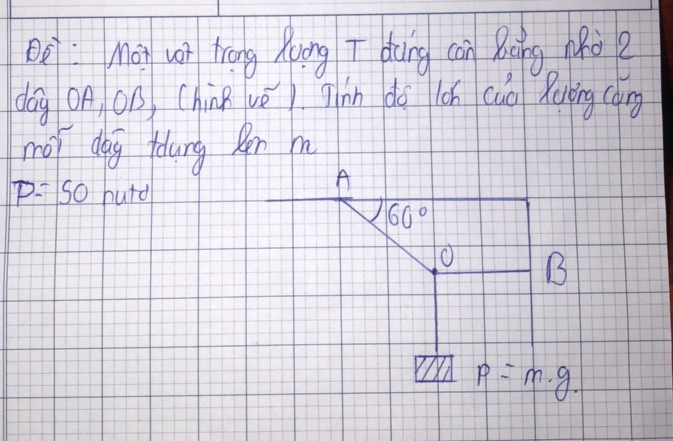 Đề: Một vật trọng lượng T đứng cân bằng nhờ 2
dây OA, OB, (hình vẽ). Tính độ lớn của lượng căng
mỗi dây tdụng lên m
P= 50 nutơ
A
60°
O
B
P = m.g.